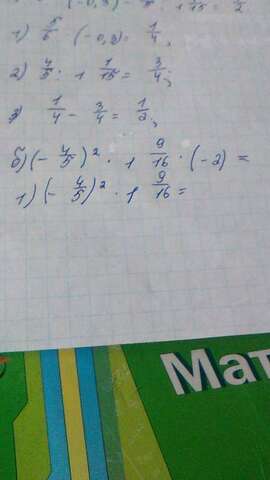 1) 5/6 · (-0,3) = 1/4;
2) 4/5 : 1 1/15 = 3/4;
3) 1/4 - 3/4 = 1/2;
б) (- 4/5)² · 1 9/16 · (-2) =
1) (- 4/5)² · 1 9/16 =
Мат